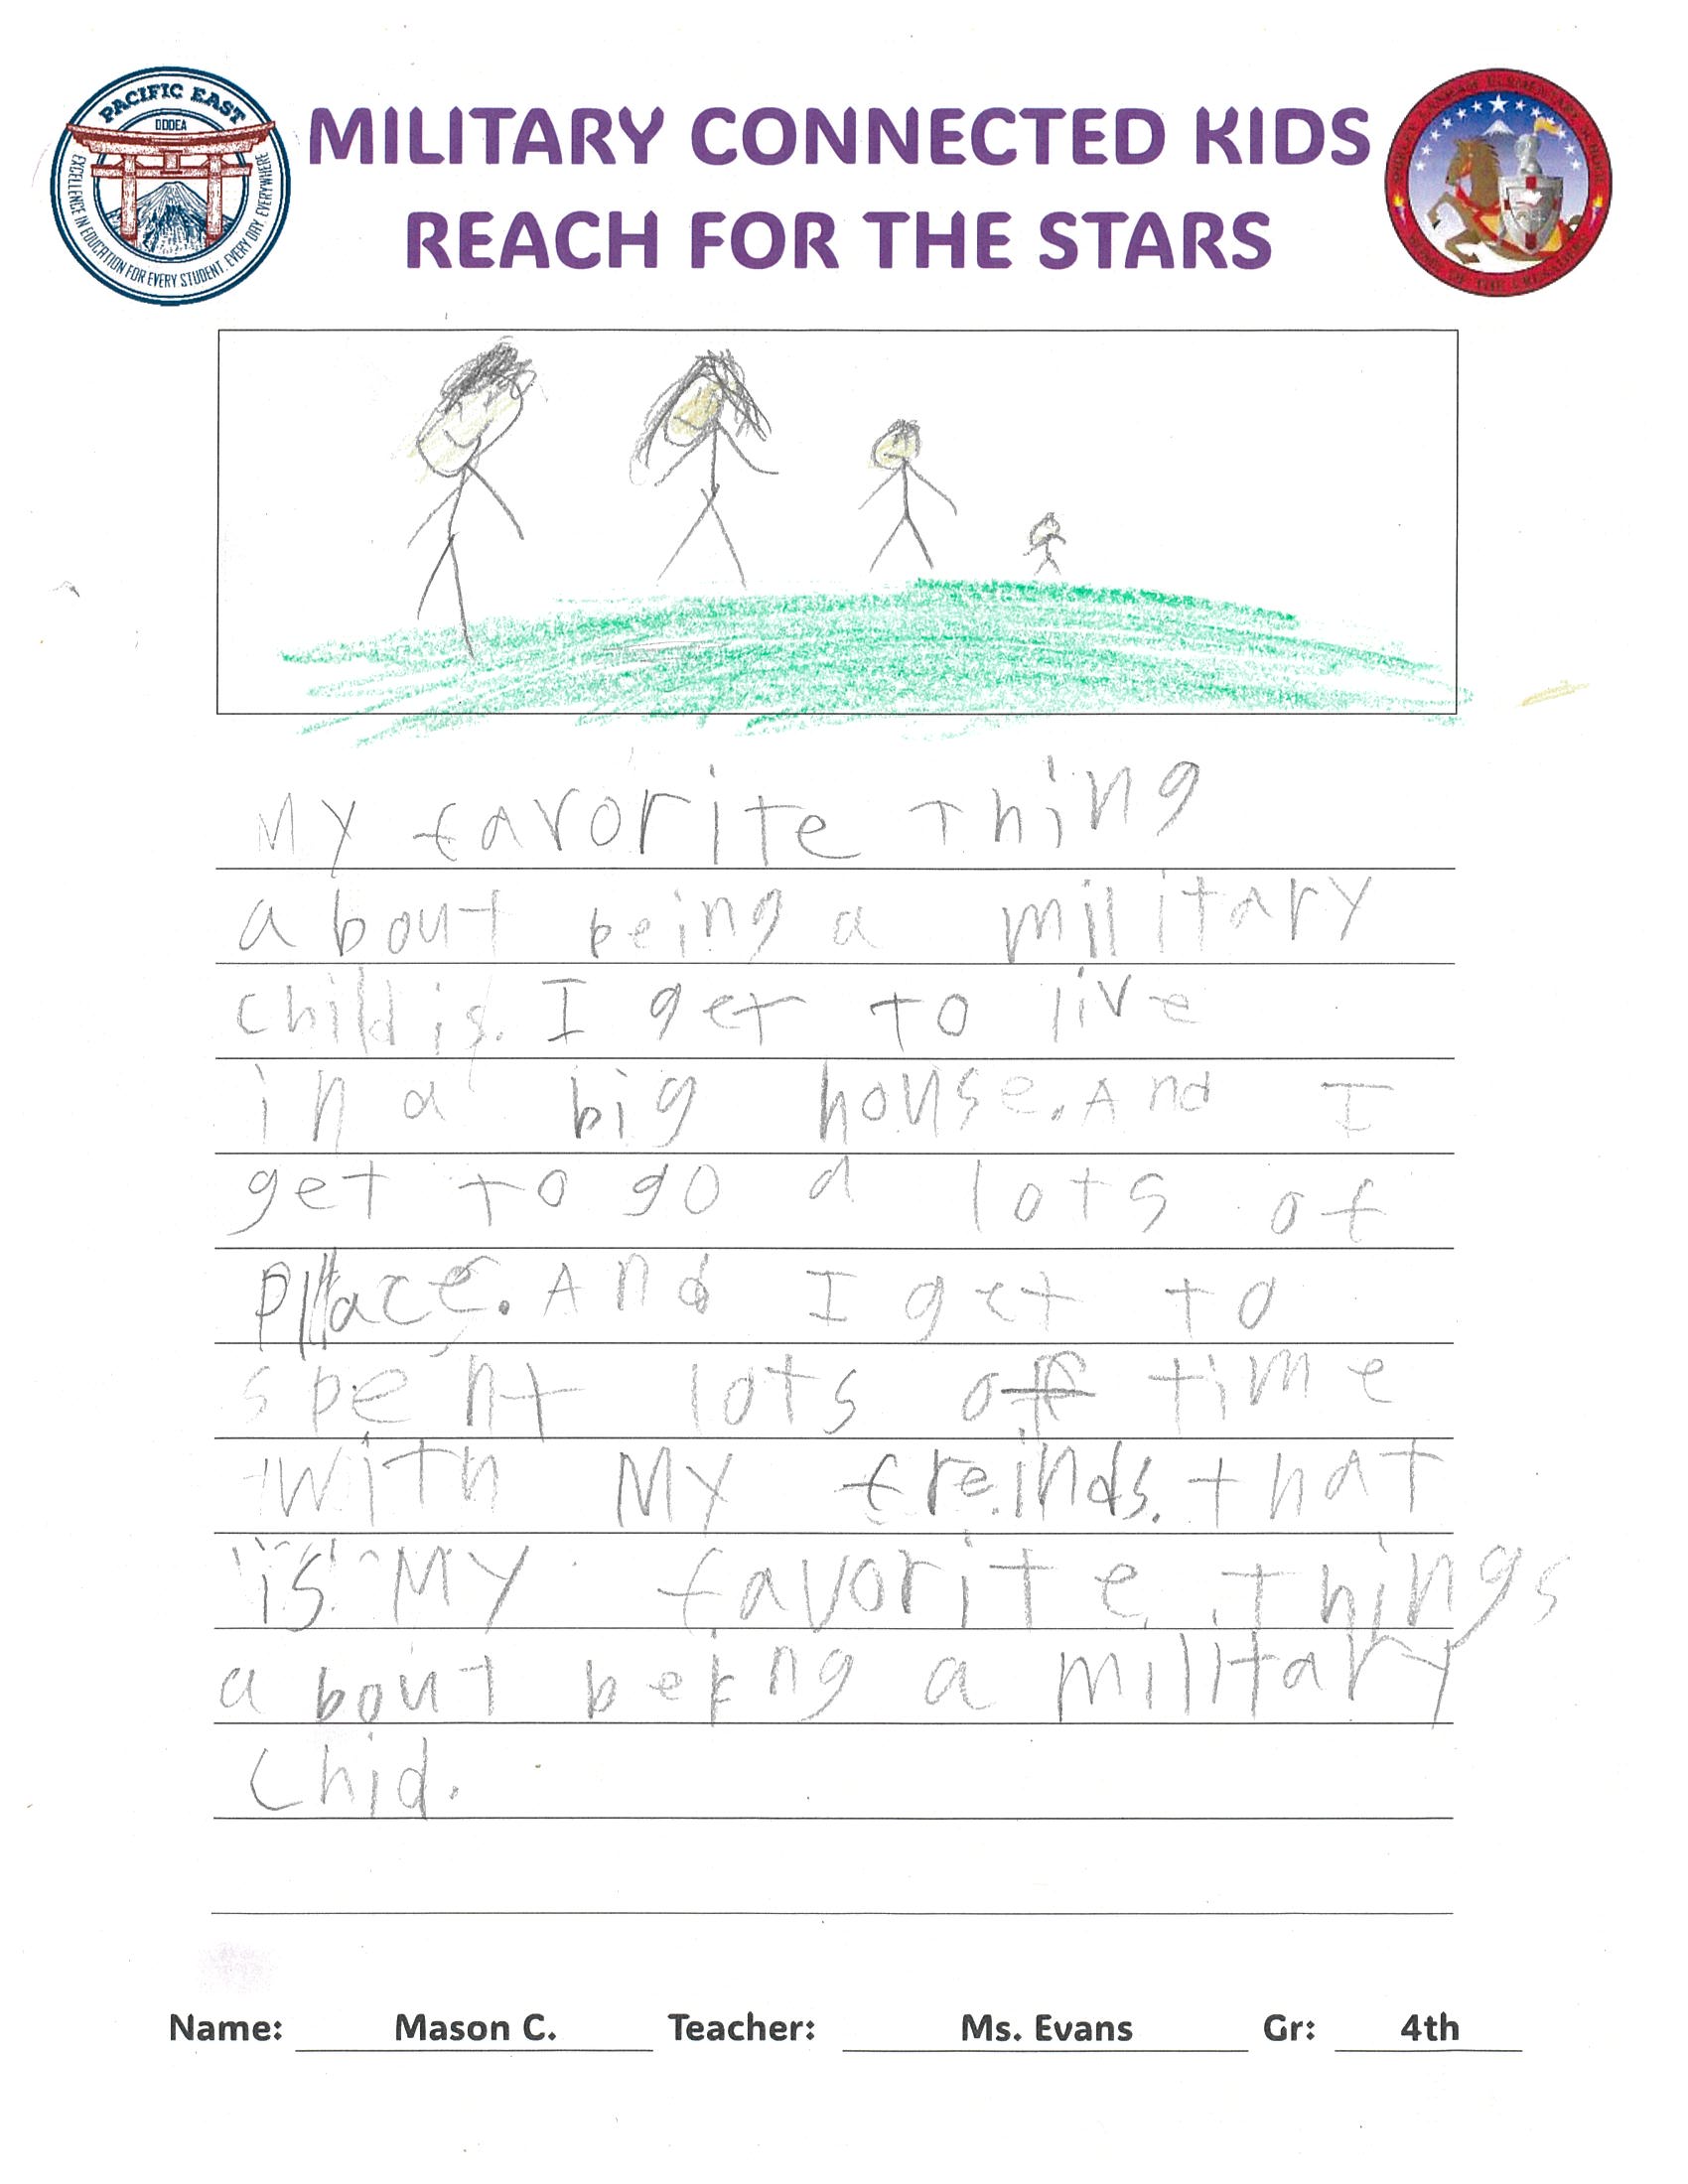 PACIFIC EAST
DODEA
EXCELLENCE IN EDUCATION FOR EVERY STUDENT, EVERY DAY, EVERYWHERE
MILITARY CONNECTED KIDS
REACH FOR THE STARS
My favorite Thing
about being a military
child is. I get to live
in a big house. And I
get to go a lots of
place. And I get to
spent lots of time
with My freinds. that
is My favorite things
about being a military
chid.
Name: Mason C. Teacher: Ms. Evans Gr: 4th